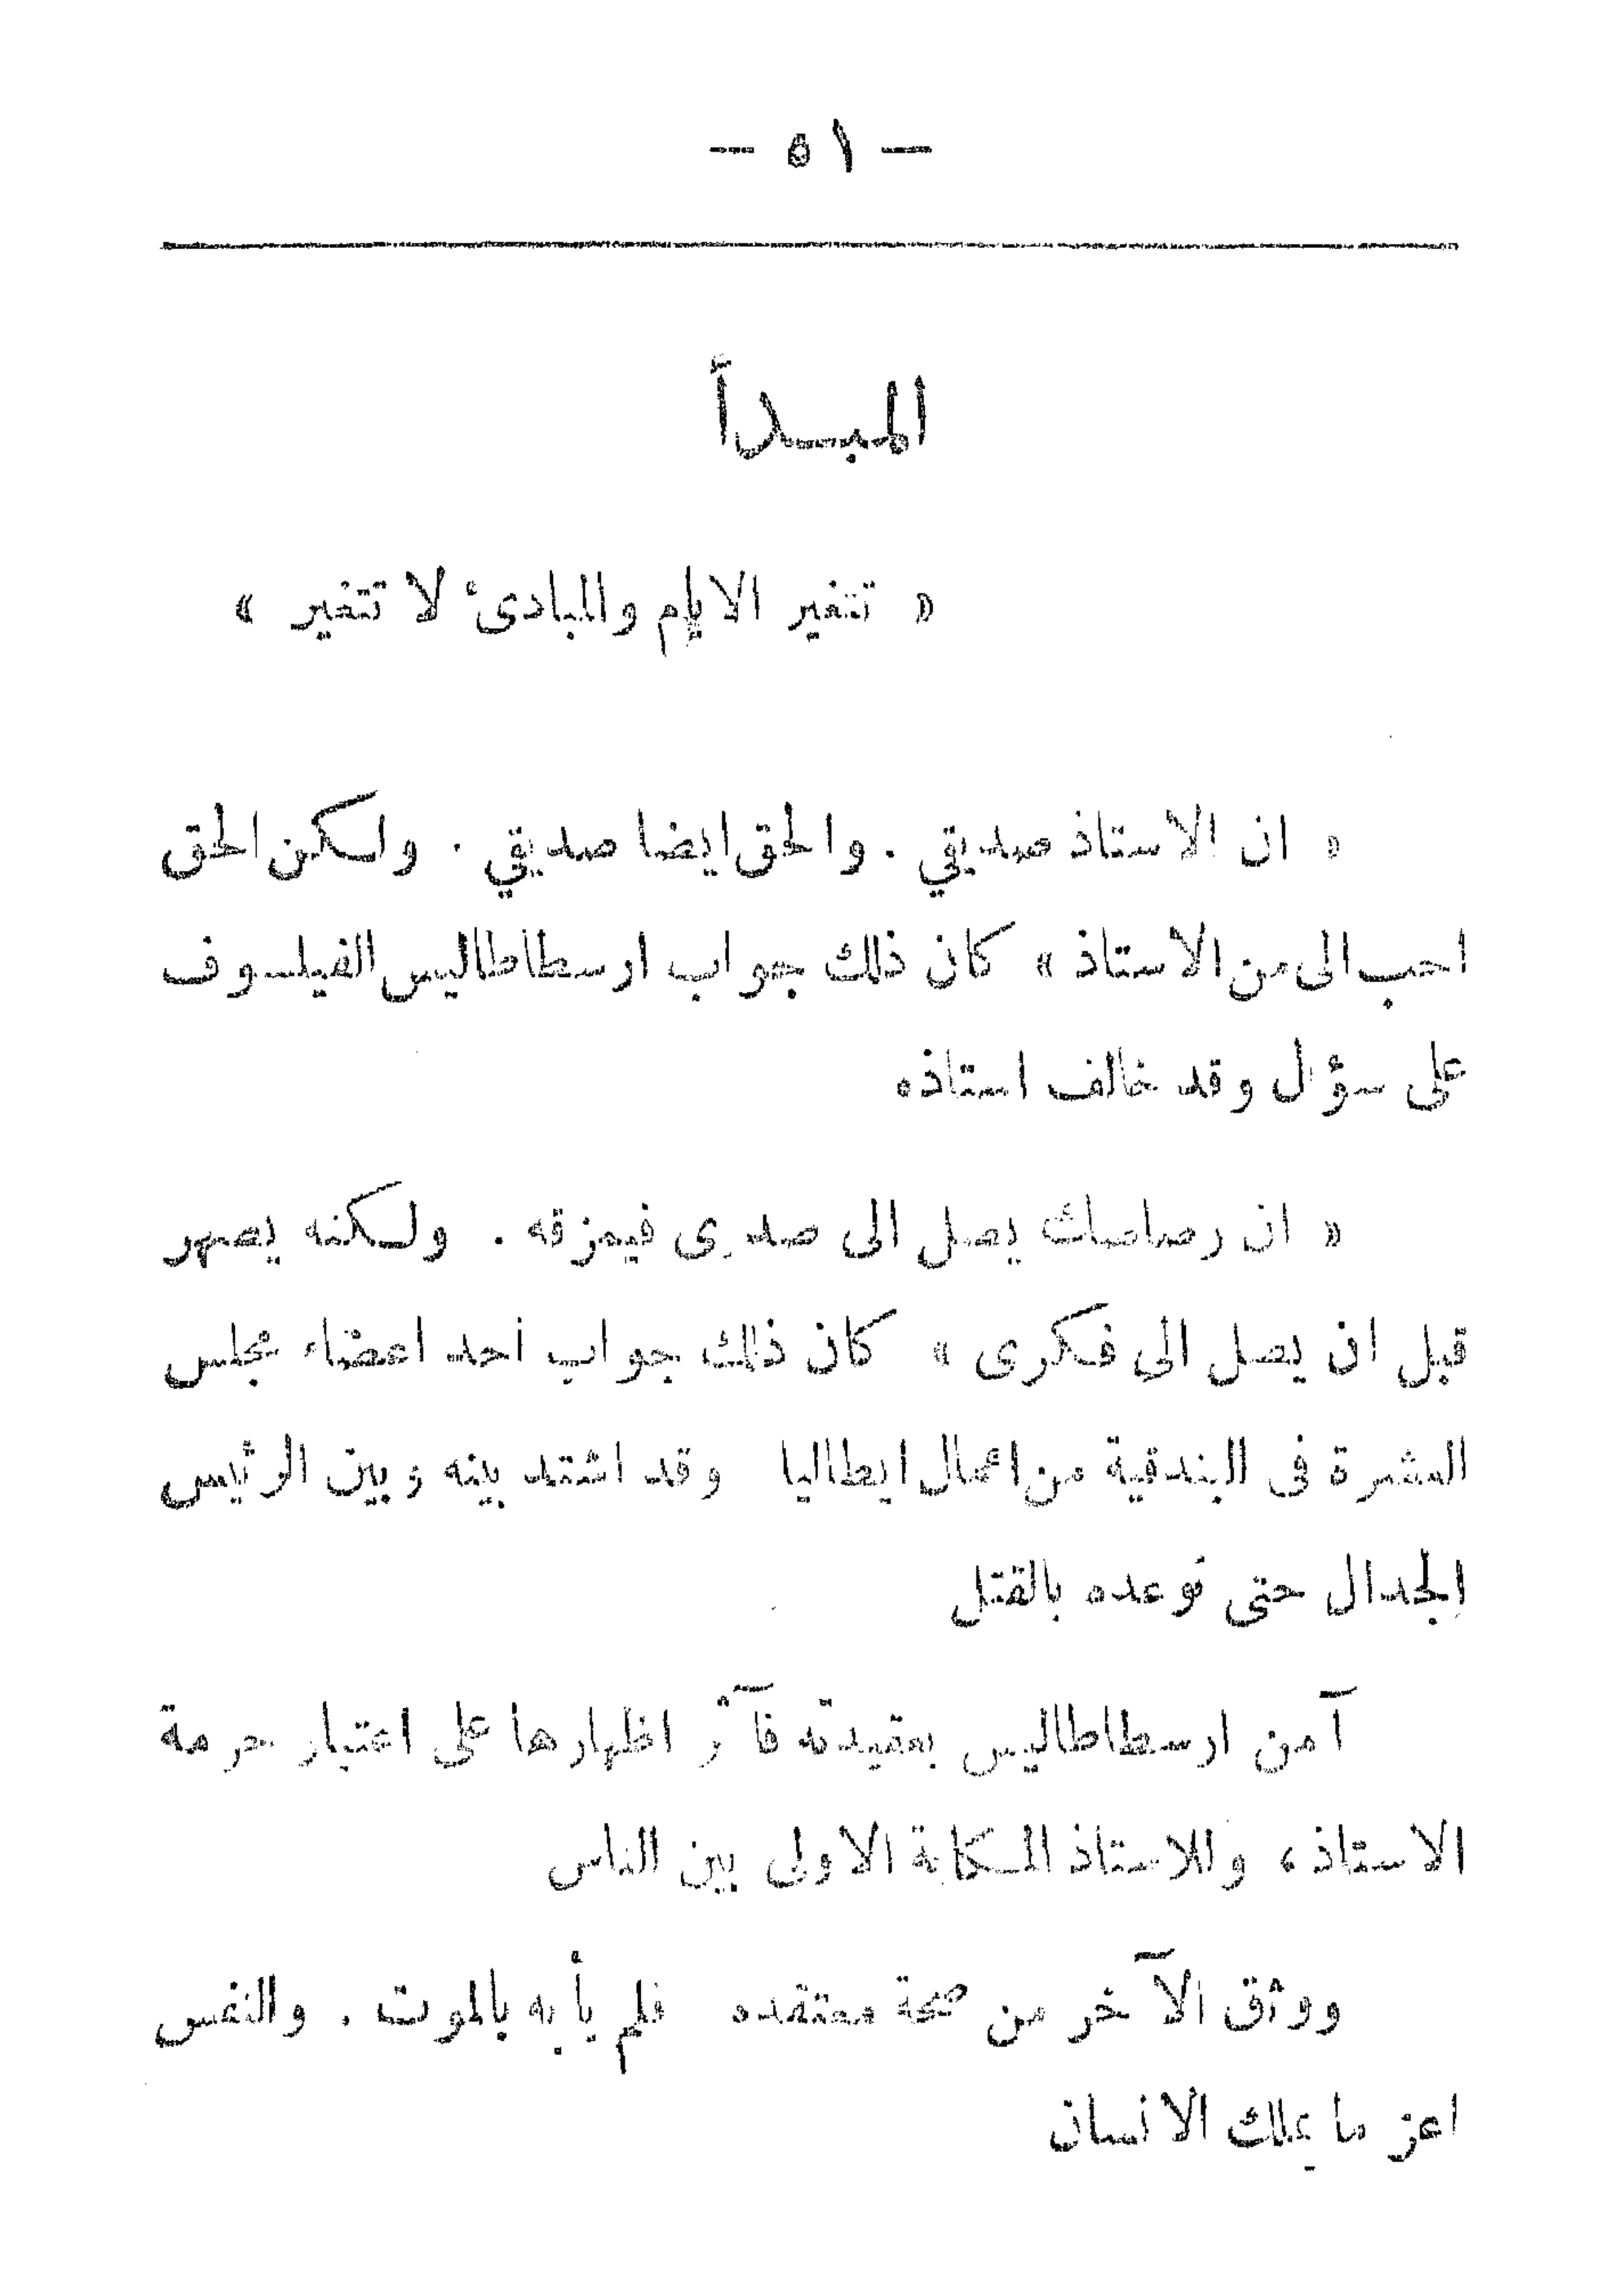 — ٥١ —
المبدأ
« تتغير الايام والمبادئ لا تتغير »
« ان الاستاذ صديقي . والحق ايضا صديقي . ولكن الحق
احب الى من الاستاذ » كان ذلك جواب ارسطاطاليس الفيلسوف
على سؤال وقد خالف استاذه
« ان رصاصك يصل الى صدرى فيمزقه . ولكنه يصهر
قبل ان يصل الى فكرى » كان ذلك جواب احد اعضاء مجلس
العشرة فى البندقية من اعمال ايطاليا وقد اشتد بينه وبين الرئيس
الجدال حتى توعده بالقتل
آمن ارسطاطاليس بعقيدته فآثر اظهارها على اعتبار حرمة
الاستاذ ، وللاستاذ المكانة الاولى بين الناس
ووثق الآخر من صحة معتقده فلم يأبه بالموت . والنفس
اعز ما يملك الانسان